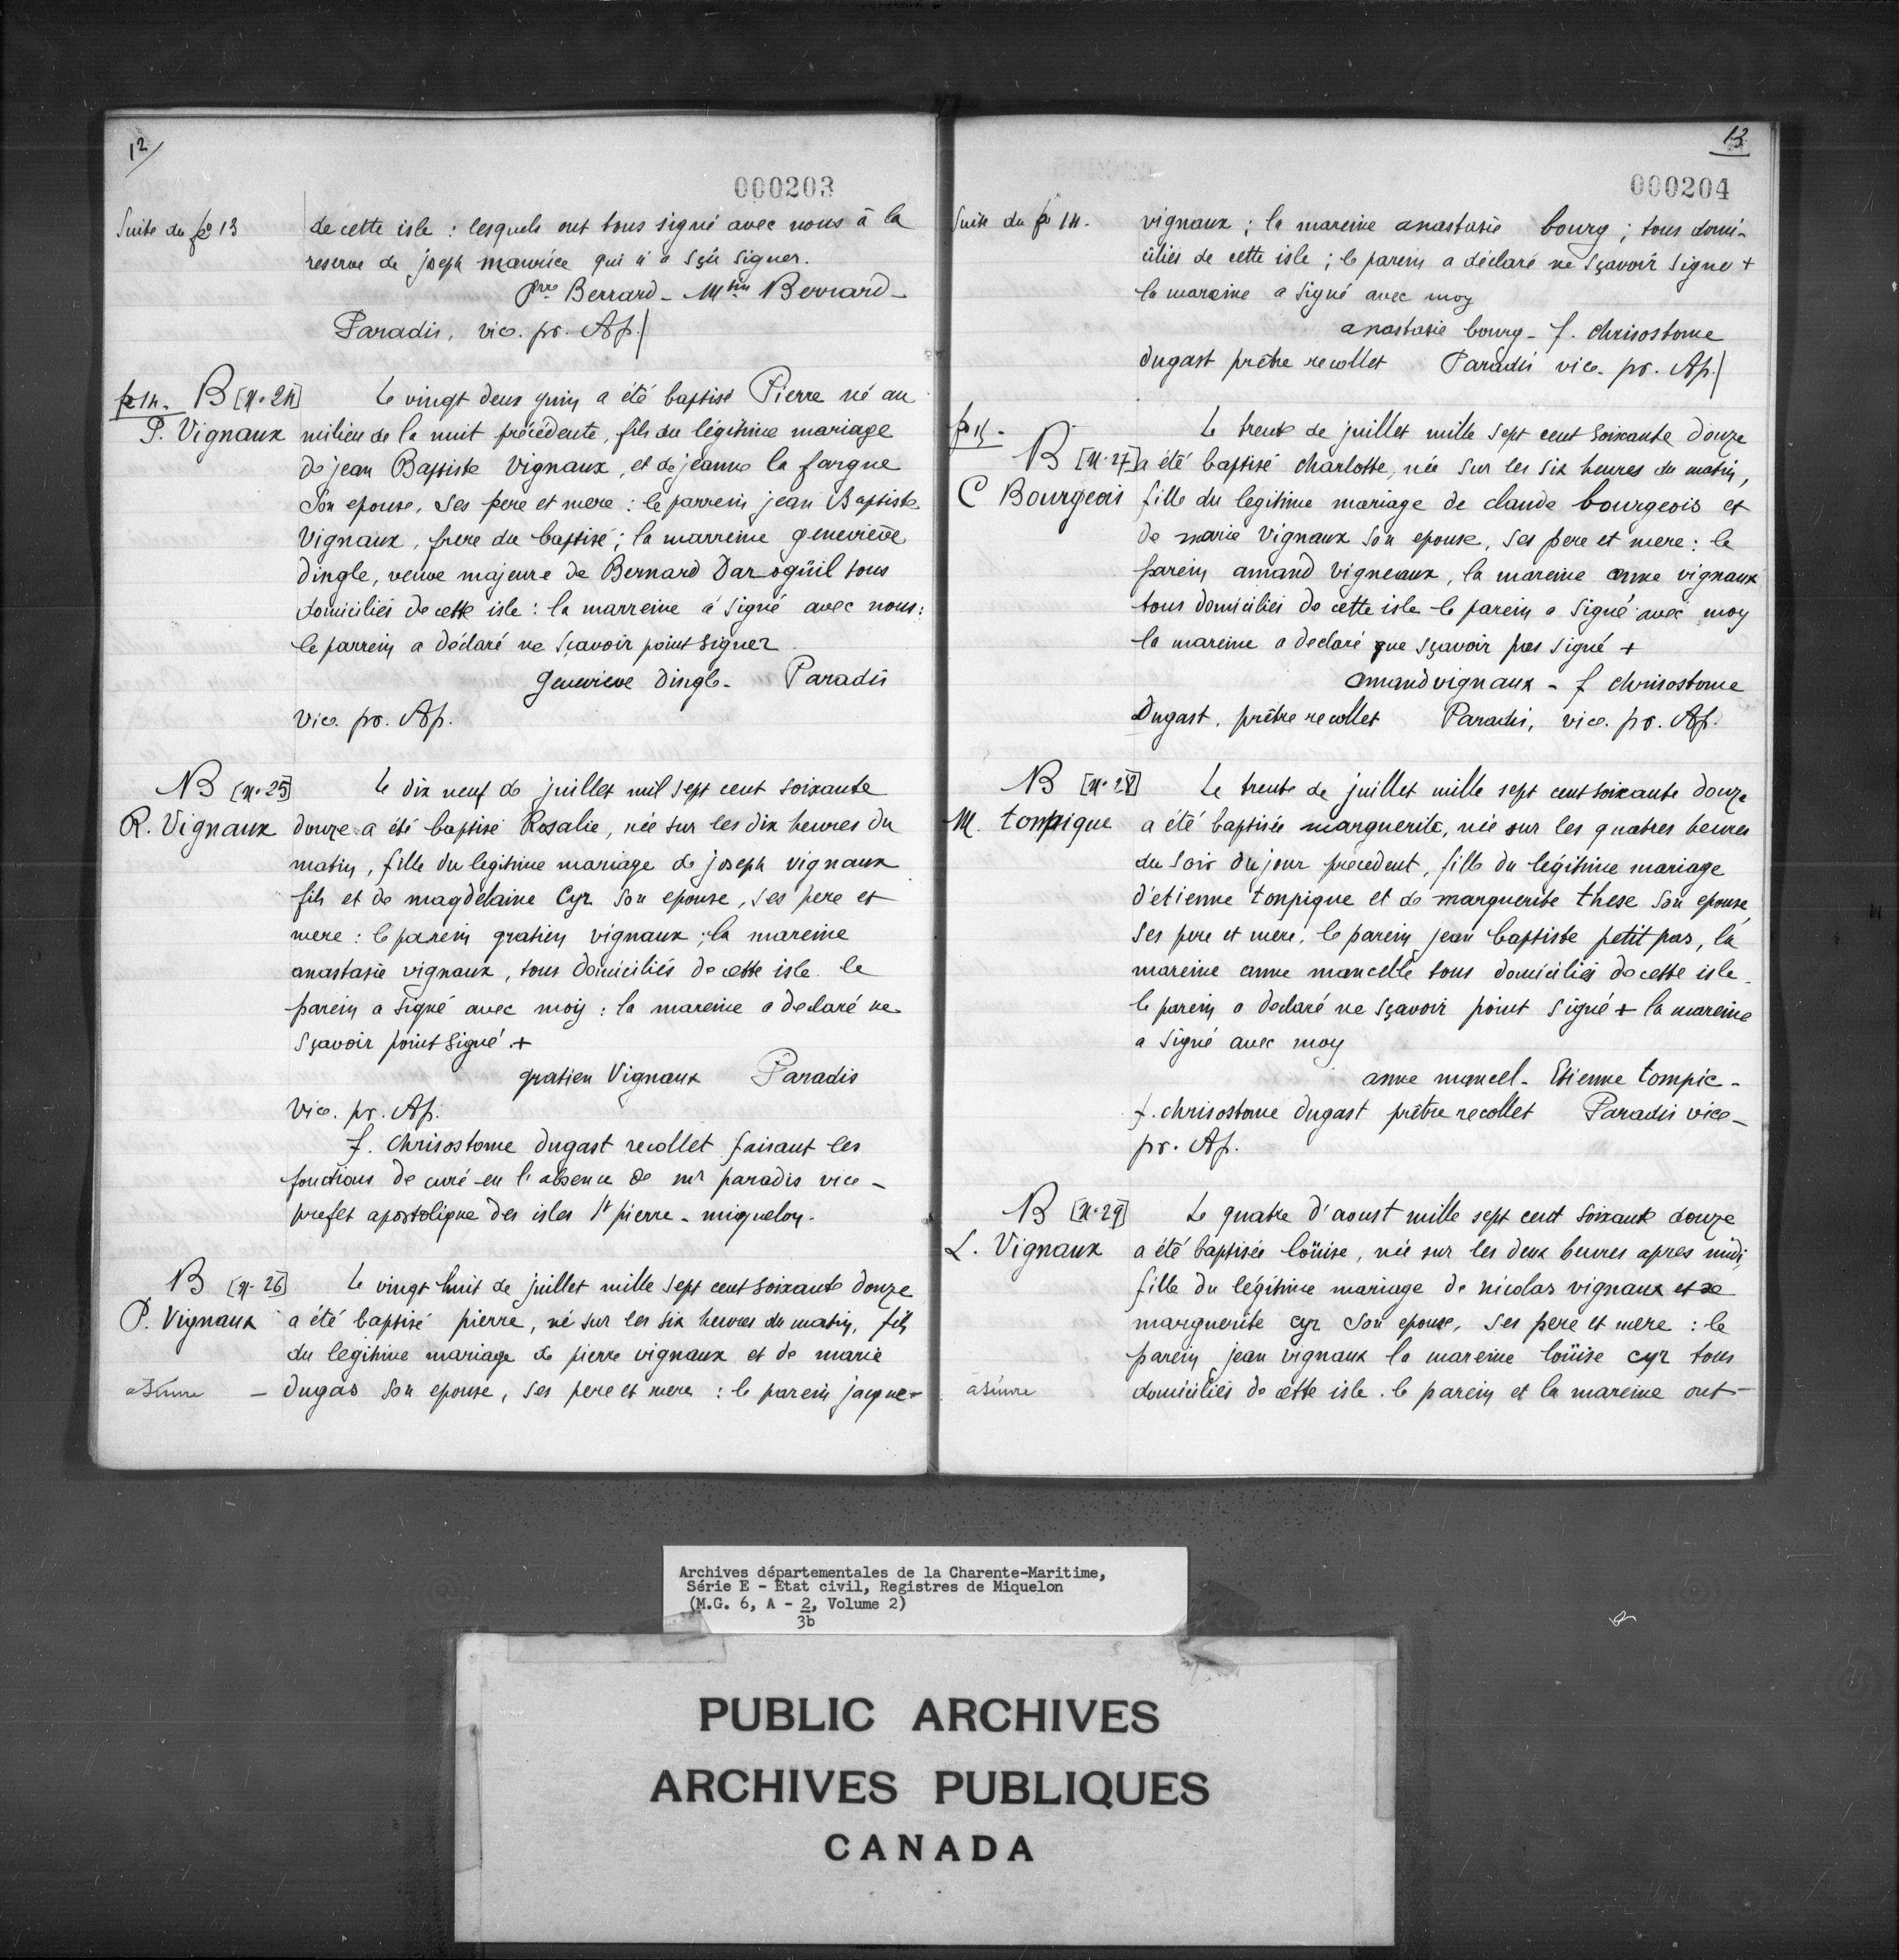 12/
000203
Suite du fo 13
de cette isle : lesquels ont tous signé avec nous à la
reserve de joseph maurice qui n'a sçû signer.
Prre Berrard - Mtin Berrard -
Paradis, vice. pr. Ap./
fo 14. B [n. 24]
P. Vignaux
Le vingt deux juin a été baptisé Pierre né au
milieu de la nuit précédente, fils du légitime mariage
de jean Baptiste Vignaux, et de jeanne la fargue
son epouse, ses pere et mere : le parrein jean Baptiste
Vignaux, frere du baptisé ; la marreine genevieve
dingle, veuve majeure de Bernard Darogüil tous
domiciliés de cette isle : la marreine a signé avec nous :
le parrein a déclaré ne sçavoir point signer
Genevieve dingle - Paradis
Vice. pr. Ap.
B [n. 25]
R. Vignaux
Le dix neuf de juillet mil sept cent soixante
douze a été baptisé Rosalie, née sur les dix heures du
matin, fille du legitime mariage de joseph vignaux
fils et de magdelaine Cyr son epouse, ses pere et
mere : le parein gratien vignaux ; la mareine
anastasie vignaux, tous domiciliés de cette isle. le
parein a signé avec moy : la mareine a declaré ne
sçavoir point signé +
gratien Vignaux Paradis
Vice. pr. Ap.
f. chrisostome dugast recollet faisant les
fonctions de curé en l'absence de mr paradis vice -
prefet apostolique des isles St pierre - miquelon.
B [n. 26]
P. Vignaux
Le vingt huit de juillet mille sept cent soixante douze
a été baptisé pierre, né sur les six heures du matin, fils
du legitime mariage de pierre vignaux et de marie
dugas son epouse, ses pere et mere : le parein jacque -
à suivre -
13
000204
Suite du fo 14.
vignaux ; la mareine anastasie bourg ; tous domi-
ciliés de cette isle ; le parein a déclaré ne sçavoir signer +
la mareine a signé avec moy
anastasie bourg - f. chrisostome
dugast prêtre recollet Paradis vice. pr. Ap./
fo 15.
B [n. 27]
C Bourgeois
Le trente de juillet mille sept cent soixante douze
a été baptisé charlotte, née sur les six heures du matin,
fille du legitime mariage de claude bourgeois et
de marie Vignaux son epouse, ses pere et mere : le
parein amand vigneaux, la mareine anne vignaux
tous domiciliés de cette isle le parein a signé avec moy
la mareine a declaré que sçavoir pas signé +
amand vignaux - f chrisostome
Dugast, prêtre recollet Paradis, vice. pr. Ap.
B [n. 28]
M. tompique
Le trente de juillet mille sept cent soixante douze
a été baptisée marguerite, née sur les quatres heures
du soir du jour precedent, fille du légitime mariage
d'etienne tonpique et de marguerite these son epouse,
ses pere et mere, le parein jean baptiste petit pas, la
mareine anne mancelle tous domiciliés de cette isle
le parein a declaré ne sçavoir point signé + la mareine
a signé avec moy
anne mancel - Etienne tompic -
f. chrisostome dugast prêtre recollet Paradis vice -
pr. Ap.
B [n. 29]
L. Vignaux
Le quatre d'aoust mille sept cent soixante douze
a été baptisée loüise, née sur les deux heures apres midi,
fille du légitime mariage de nicolas vignaux et de
marguerite cyr son epouse, ses pere et mere : le
parein jean vignaux la mareine loüise cyr tous
domiciliés de cette isle. le parein et la mareine ont -
à suivre
Archives départementales de la Charente-Maritime,
Série E - Etat civil, Registres de Miquelon
(M.G. 6, A - 2, Volume 2)
3b
PUBLIC ARCHIVES
ARCHIVES PUBLIQUES
CANADA